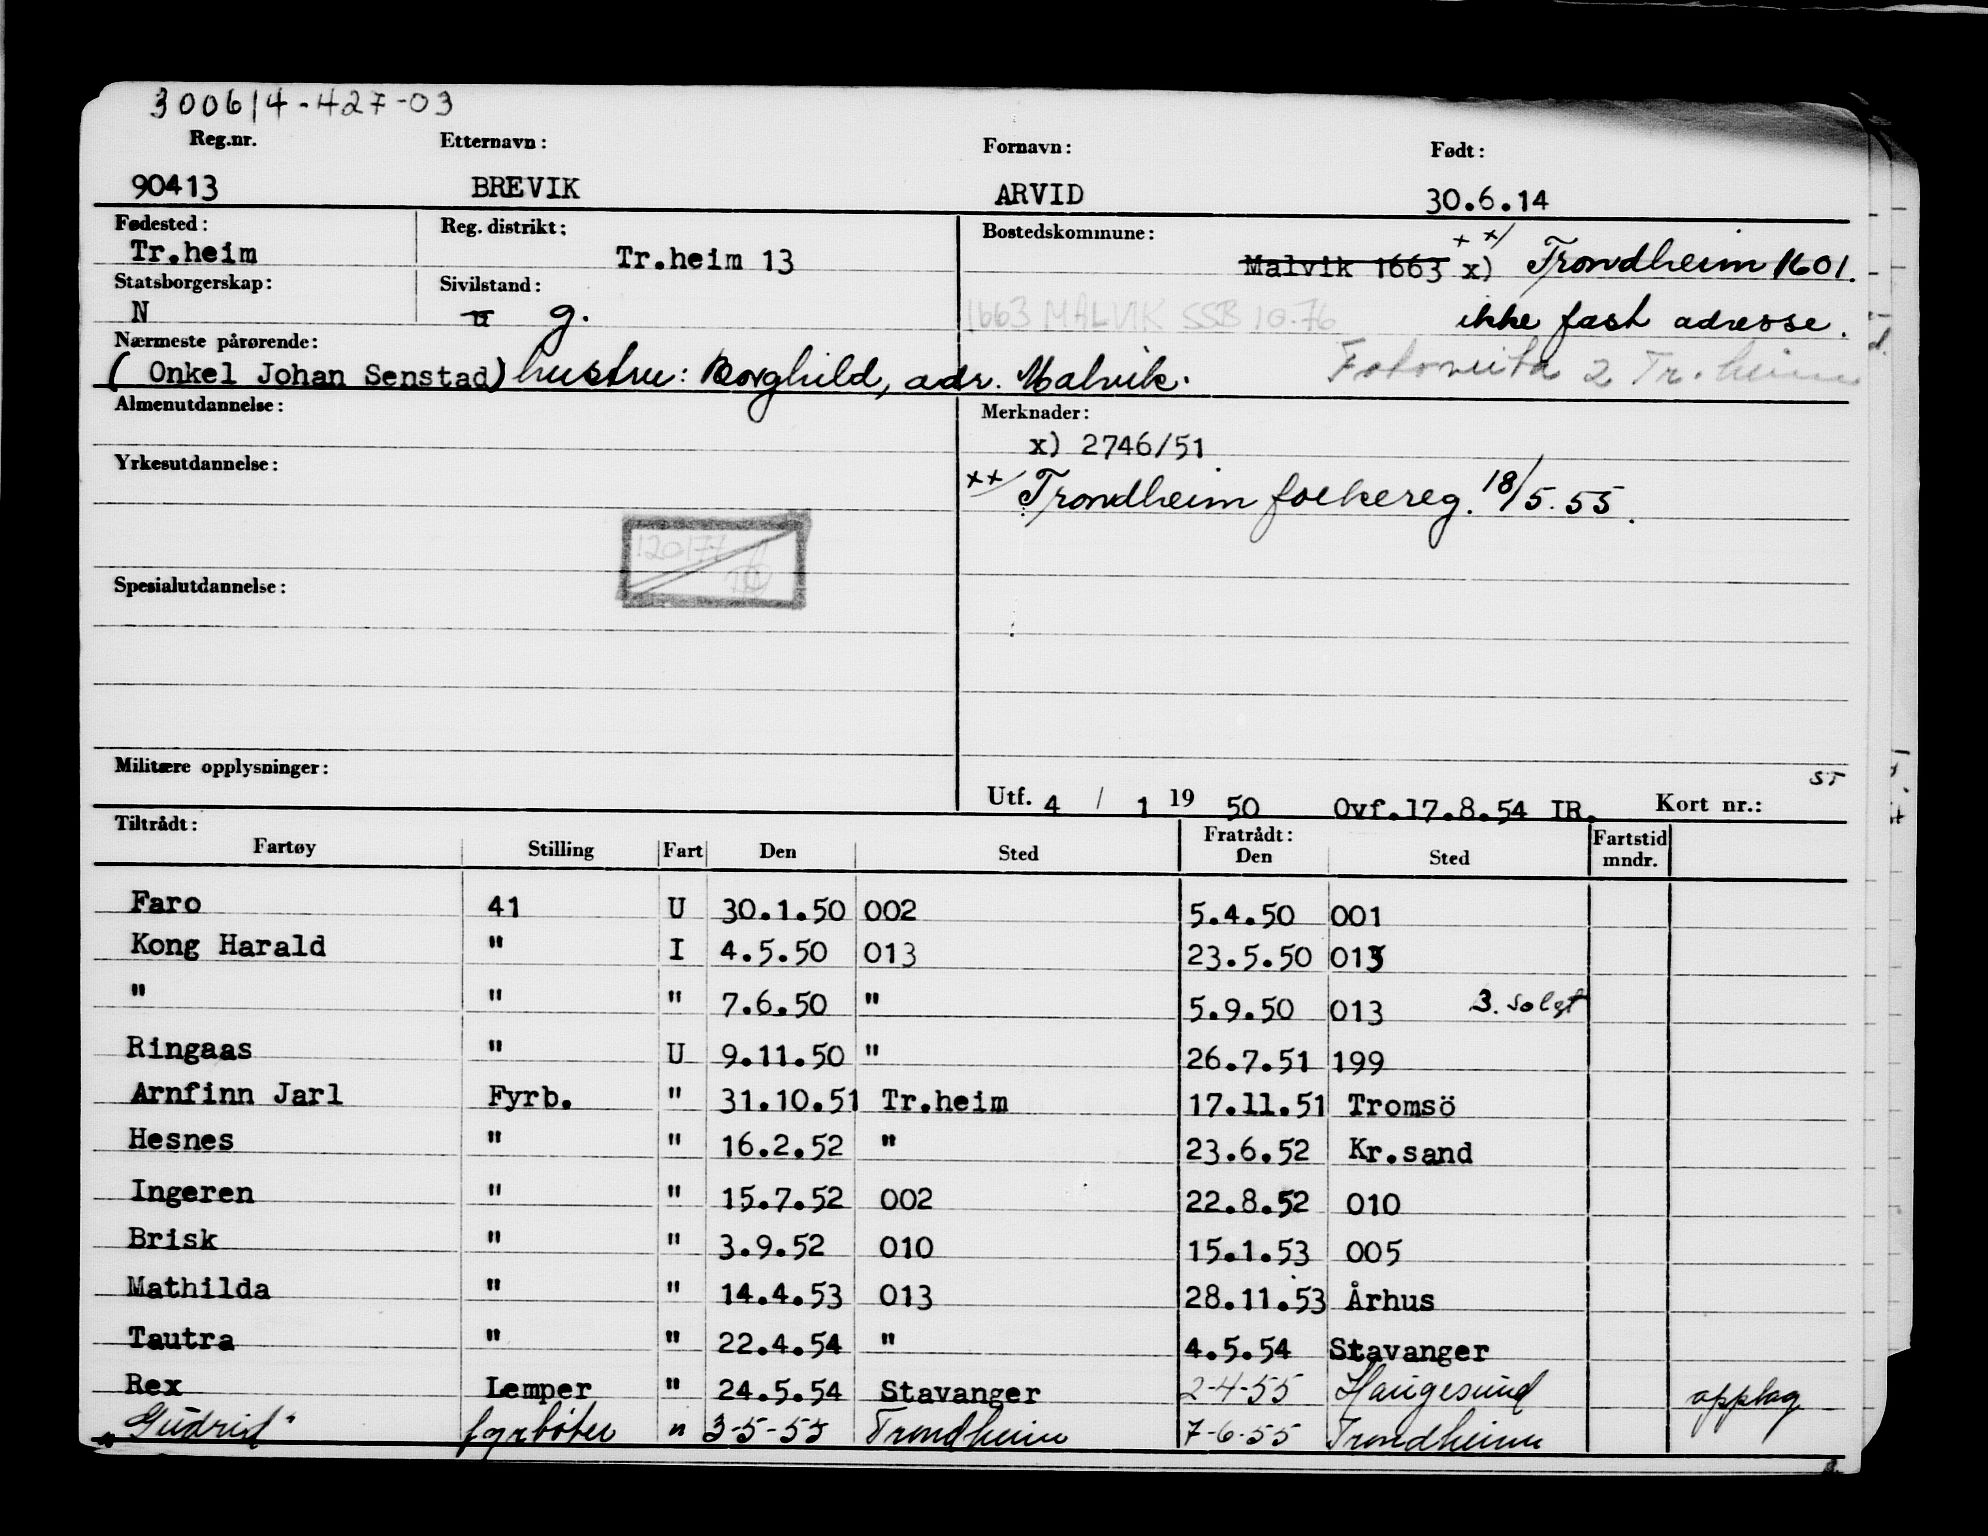 300614-427-03
Reg.nr. Etternavn: Fornavn: Født:
90413 BREVIK ARVID 30.6.14
Fødested: Reg. distrikt: Bostedskommune:
Tr.heim Tr.heim 13 Malvik 1663 x) ++/ Trondheim 1601.
Statsborgerskap: Sivilstand:
N u g. 1663 MALVIK SSB 10.76 ikke fast adresse.
Nærmeste pårørende:
( Onkel Johan Senstad) hustru: Borghild, adr. Malvik. 2 Tr.heim
Almenutdannelse: Merknader:
x) 2746/51
Yrkesutdannelse:
++/ Trondheim folkereg. 18/5.55.
120177
Spesialutdannelse:
Militære opplysninger:
ST
Utf. 4 / 1 19 50 Ovf.17.8.54 IR. Kort nr.:
Tiltrådt: Fratrådt: Fartstid
Fartøy Stilling Fart Den Sted Den Sted mndr.
Faro 41 U 30.1.50 002 5.4.50 001
Kong Harald " I 4.5.50 013 23.5.50 013
" " " 7.6.50 " 5.9.50 013 3. Solgt
Ringaas " U 9.11.50 " 26.7.51 199
Arnfinn Jarl Fyrb. " 31.10.51 Tr.heim 17.11.51 Tromsö
Hesnes " " 16.2.52 " 23.6.52 Kr.sand
Ingeren " " 15.7.52 002 22.8.52 010
Brisk " " 3.9.52 010 15.1.53 005
Mathilda " " 14.4.53 013 28.11.53 Århus
Tautra " " 22.4.54 " 4.5.54 Stavanger
Rex Lemper " 24.5.54 Stavanger 2-4-55 Haugesund opplag
"Gudrid" fyrbøter " 3-5-55 Trondheim 7-6-55 Trondheim